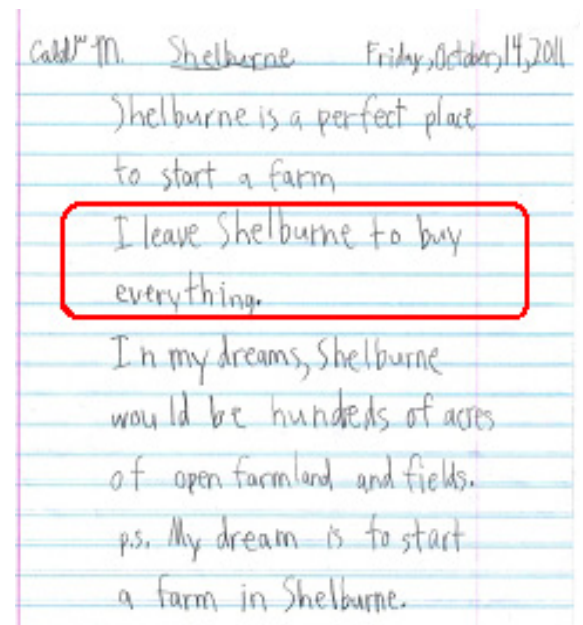 M. Shelburne Friday, October, 14, 2011
Shelburne is a perfect place
to start a farm
I leave Shelburne to buy
everything.
In my dreams, Shelburne
would be hundeds of acres
of open farmland and fields.
p.s. My dream is to start
a farm in Shelburne.